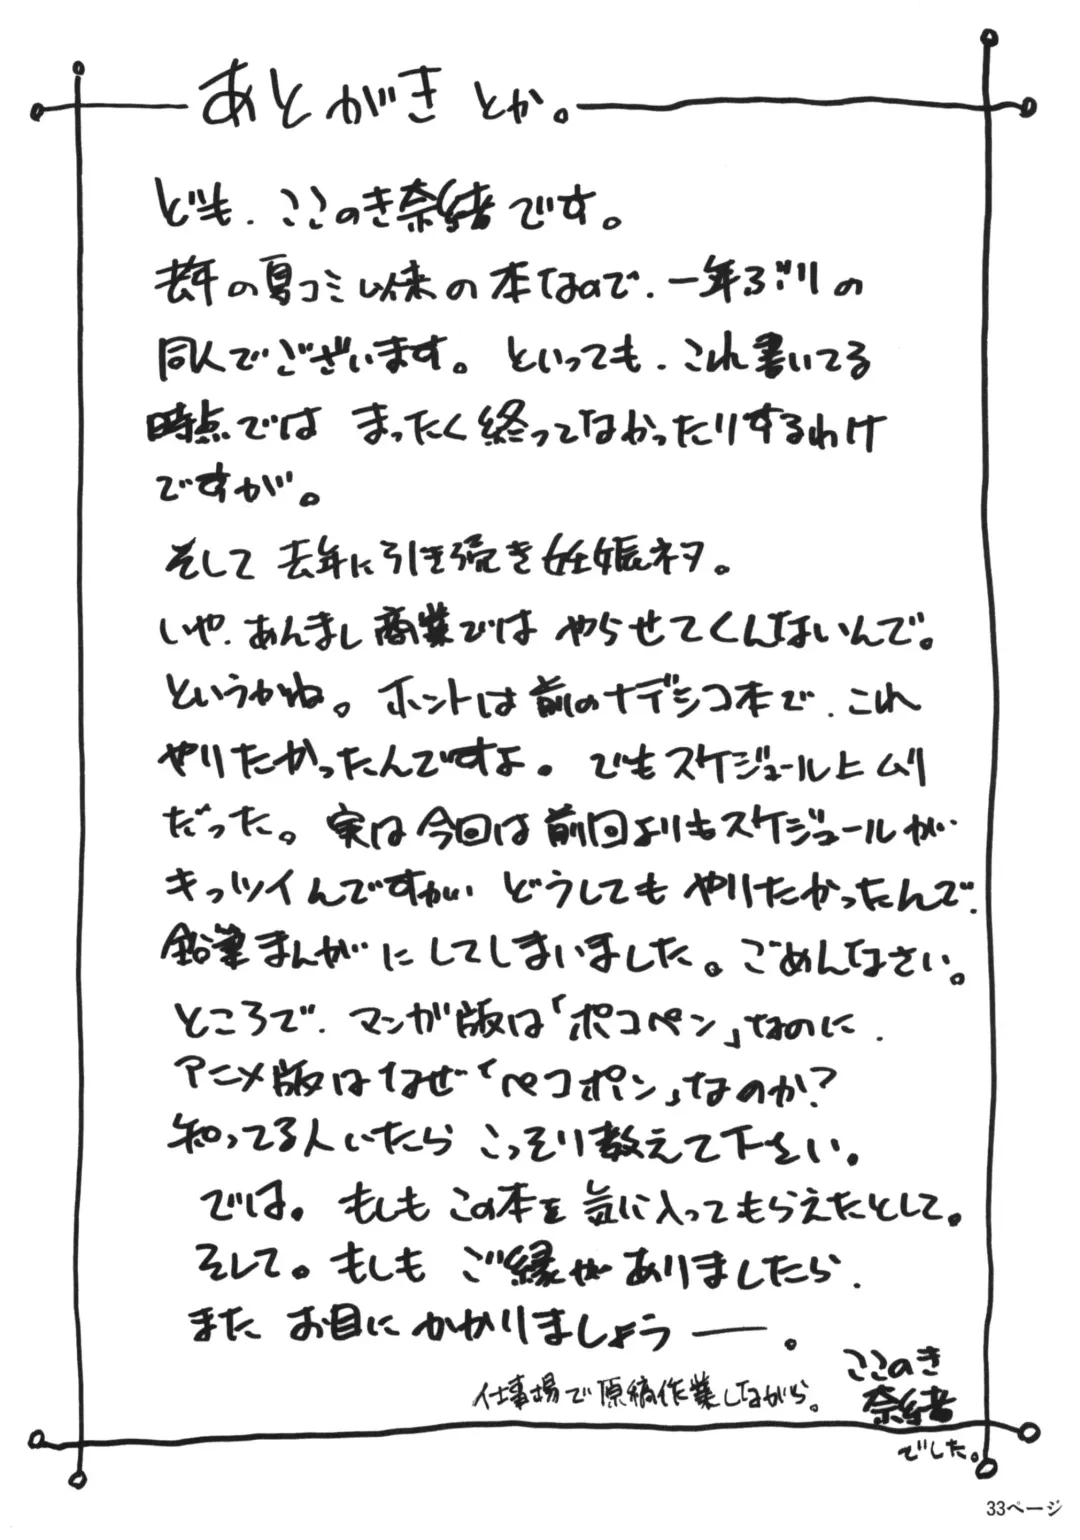 あとがきとか。
ども、ここのき奈緒です。
去年の夏コミ以来の本なので、一年ぶりの
同人でございます。といっても、これ書いてる
時点では まったく終ってなかったりするわけ
ですが。
そして去年に引き続き妊娠ネタ。
いや、あんまし商業では やらせてくんないんで。
というかね。ホントは前のナデシコ本で、これ
やりたかったんですよ。でもスケジュール上ムリ
だった。実は今回は前回よりもスケジュールが
キッツイんですがどうしても やりたかったんで、
鉛筆まんがにしてしまいました。ごめんなさい。
ところで、マンガ版は「ポコペン」なのに、
アニメ版はなぜ「ペコポン」なのか?
知ってる人いたら こっそり教えて下さい。
では。もしもこの本を気に入ってもらえたとして。
そして。もしも ご縁がありましたら、
また お目にかかりましょうー。
仕事場で原稿作業しながら。
ここのき
奈緒
でした。
33ページ